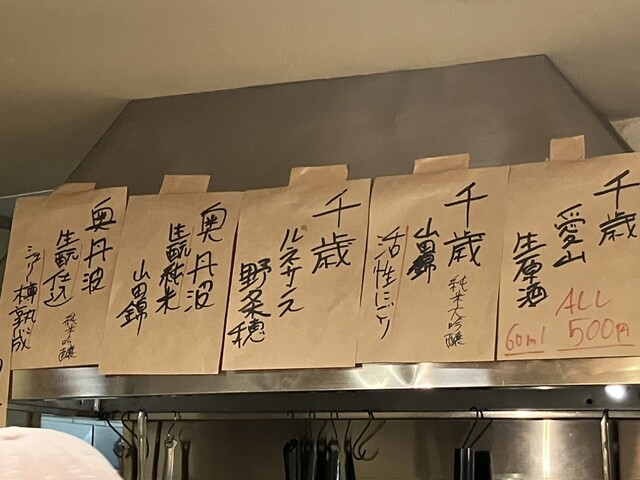 千歳
愛山
生原酒
ALL
60ml 500円
千歳
純米大吟醸
山田錦
活性にごり
千歳
ルネサンス
野条穂
奥丹波
生酛純米
山田錦
奥丹波
生酛仕込
純米吟醸
シェリー樽熟成